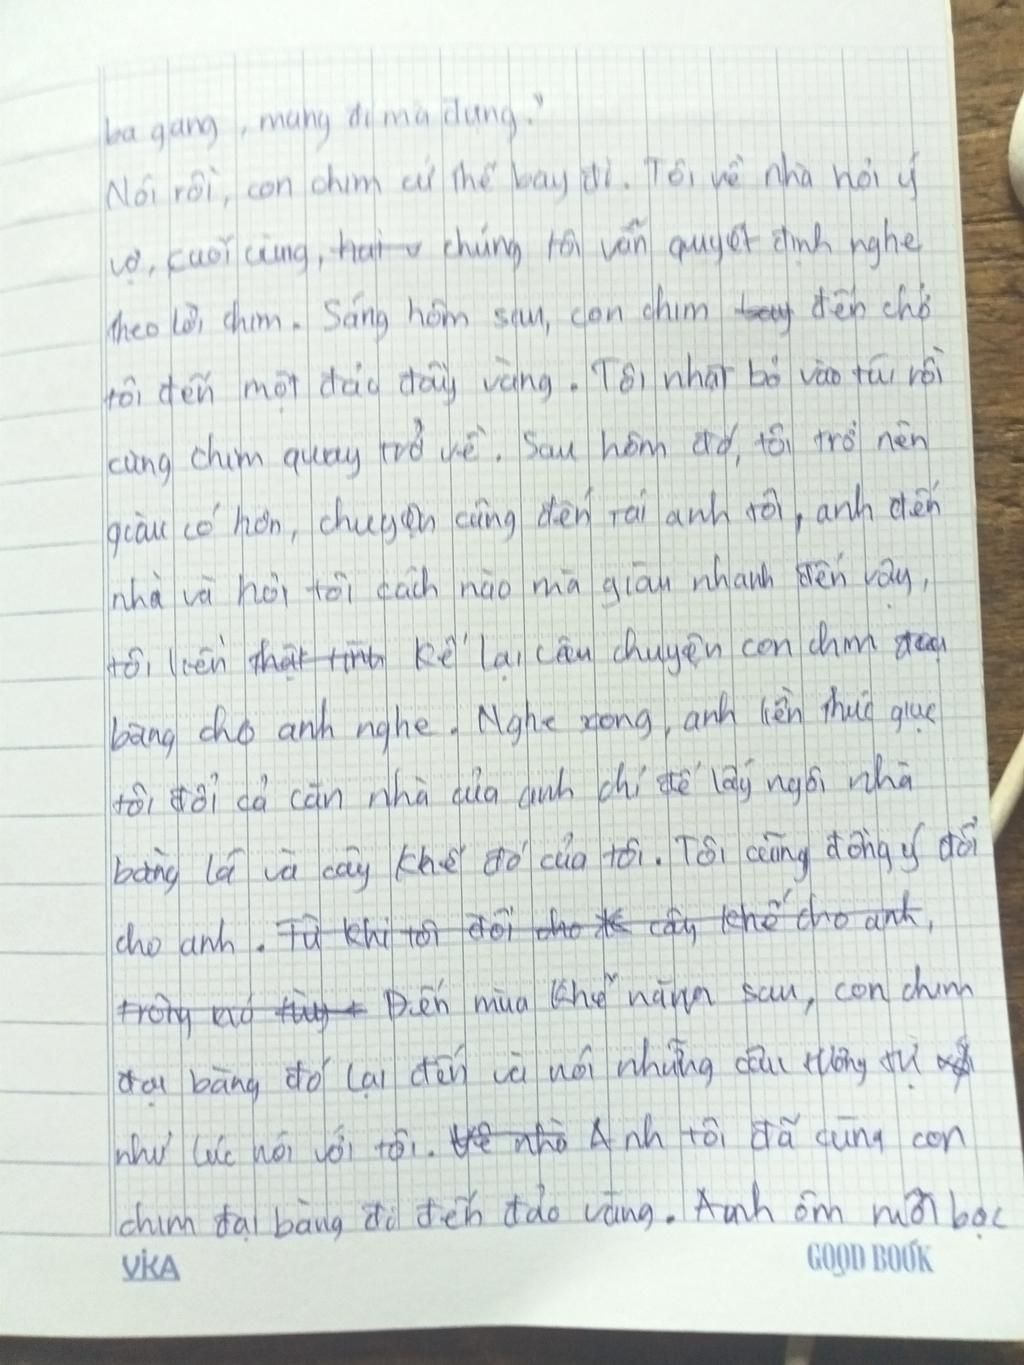 ba gang, mang đi mà đựng."
Nói rồi, con chim cứ thế bay đi. Tôi về nhà hỏi ý
vợ, cuối cùng, hai v chúng tôi vẫn quyết định nghe
theo lời chim. Sáng hôm sau, con chim bay đến chở
tôi đến một đảo đầy vàng. Tôi nhặt bỏ vào túi rồi
cùng chim quay trở về. Sau hôm đó, tôi trở nên
giàu có hơn, chuyện cũng đến tai anh tôi, anh đến
nhà và hỏi tôi cách nào mà giàu nhanh đến vậy,
tôi liền thật tình kể lại câu chuyện con chim đại
bàng cho anh nghe. Nghe xong, anh liền thúc giục
tôi đổi cả căn nhà của anh chỉ để lấy ngôi nhà
bằng lá và cây khế đó của tôi. Tôi cũng đồng ý đổi
cho anh. Từ khi tôi đổi cho cây khế cho anh,
Đến mùa khế năm sau, con chim
đại bàng đó lại đến và nói những câu tương tự
như lúc nói với tôi. Về nhà Anh tôi đã cùng con
chim đại bàng đi đến đảo vàng. Anh ôm mỗi bọc
VIKA GOOD BOOK